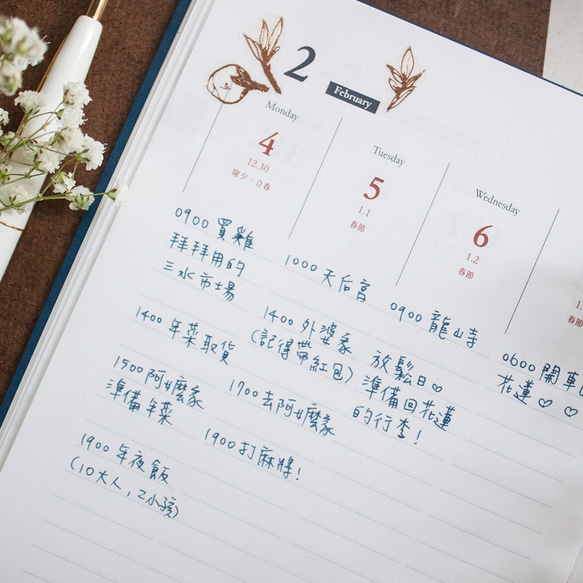 2
February
Monday
4
12.30
除夕．立春
0900 買雞
拜拜用的
三水市場
1400 年菜取貨
1500 阿嬤家
準備年菜
1900 年夜飯
(10大人, 2小孩)
Tuesday
5
1.1
春節
1000 天后宮
1400 外婆家
(記得帶紅包)
1700 去阿嬤家
1900 打麻將!
Wednesday
6
1.2
春節
0900 龍山寺
放鬆日♡
準備回花蓮
的行李!
1.
春
0600 開車
花蓮 ♡ ♡